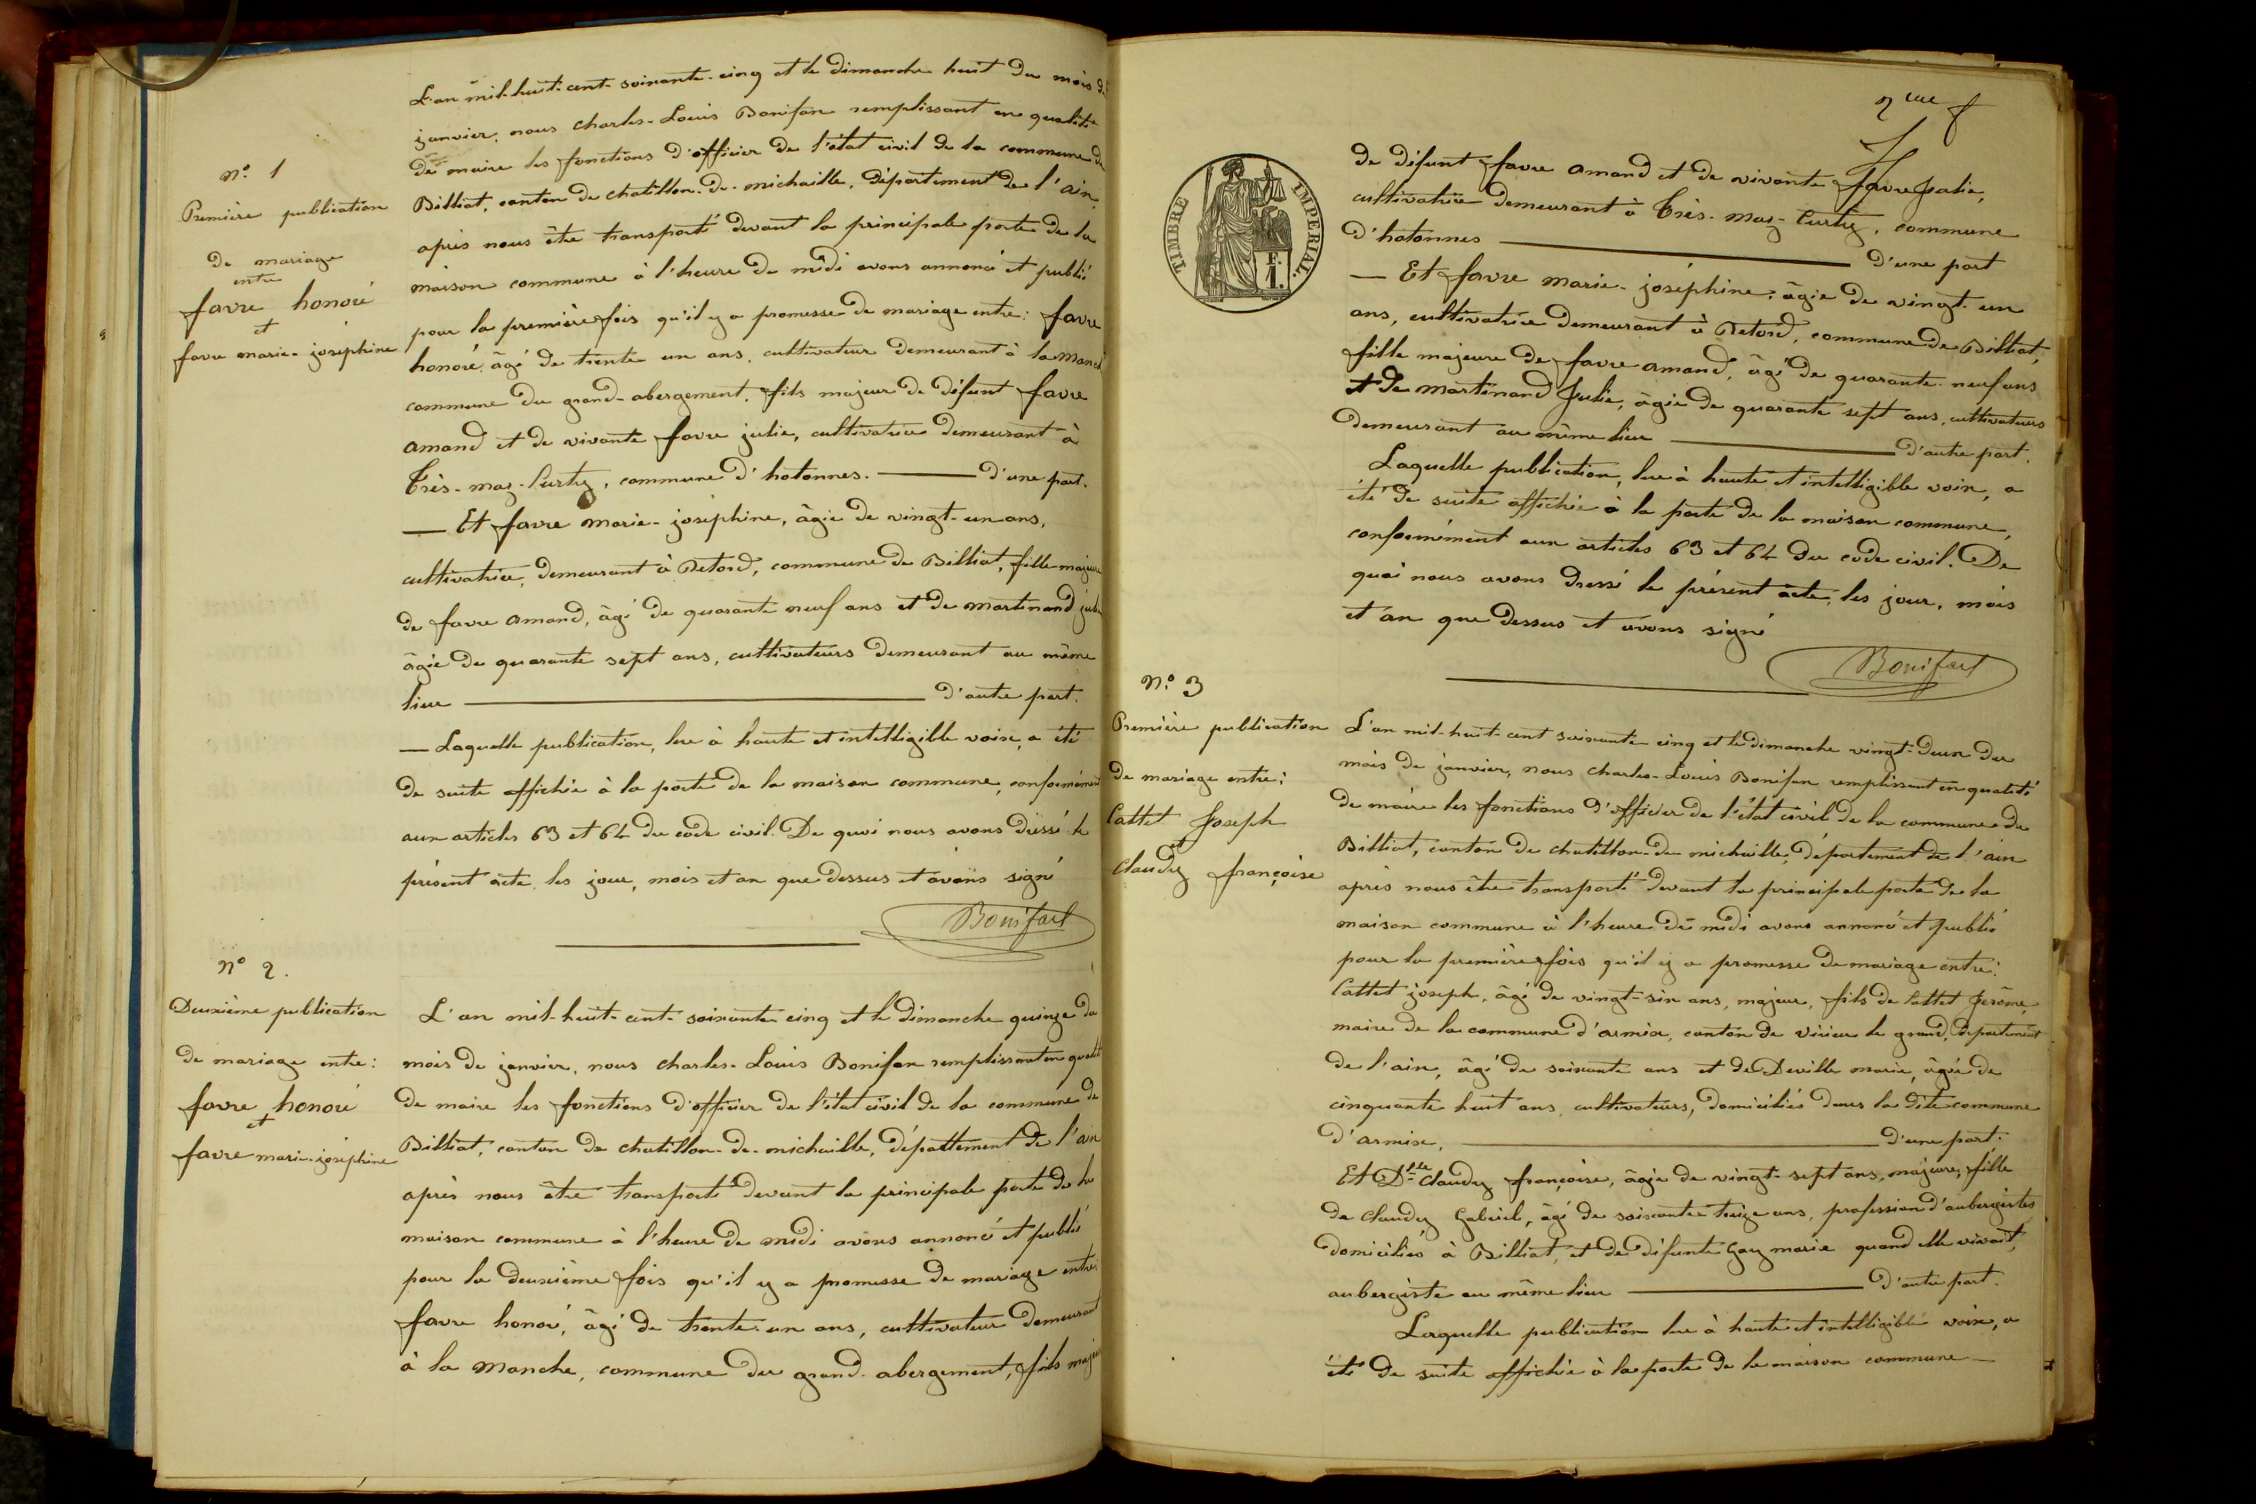 L'an mil-huit-cent-soixante-cinq et le dimanche huit du mois de
janvier, nous charles-Louis Bonifan remplissant en qualité
de maire les fonctions d'officier de l'état civil de la commune de
Billiat, canton de chatillon-de-michaille, département de l'ain,
après nous être transporté devant la principale porte de la
maison commune à l'heure de midi avons annoncé et publié
pour la première fois qu'il y a promesse de mariage entre: favre
honoré, âgé de trente un ans, cultivateur demeurant à la Manche
commune du grand-abergement, fils majeur de défunt favre
amand et de vivante favre julie, cultivatrice demeurant à
Très-maz-Curtiz, commune d'hotonnes. d'une part.
Et favre Marie-joséphine, âgée de vingt-un ans,
cultivatrice, demeurant à Retord, commune de Billiat, fille majeure
de favre amand, âgé de quarante neuf ans et de martinand julie
âgée de quarante sept ans, cultivateurs demeurant au même
lieu d'autre part.
Laquelle publication, lue à haute et intelligible voix, a été
de suite affichée à la porte de la maison commune, conformément
aux articles 63 et 64 du code civil. De quoi nous avons dressé le
présent acte, les jour, mois et an que dessus et avons signé
Bonifait
n° 1
Première publication
de mariage
entre
favre honoré
et
favre marie-joséphine
n° 2.
Deuxième publication
de mariage entre:
favre honoré
et
favre marie-joséphine
L'an mil-huit-cent-soixante cinq et le dimanche quinze du
mois de janvier, nous charles-Louis Bonifan remplissant en qualité
de maire les fonctions d'officier de l'état civil de la commune de
Billiat, canton de chatillon-de-michaille, département de l'ain
après nous être transporté devant la principale porte de la
maison commune à l'heure de midi avons annoncé et publié
pour la deuxième fois qu'il y a promesse de mariage entre:
favre honoré, âgé de trente-un ans, cultivateur demeurant
à la Manche, commune du grand-abergement, fils majeur
TIMBRE IMPERIAL.
F.
1.
de défunt favre amand et de vivante favre julie,
cultivatrice demeurant à Très-maz-Curtiz, commune
d'hotonnes d'une part
Et favre marie-joséphine, âgée de vingt-un
ans, cultivatrice demeurant à Retord, commune de Billiat,
fille majeure de favre amand, âgé de quarante-neuf ans
et de martinand Julie, âgée de quarante sept ans, cultivateurs
demeurant au même lieu d'autre part.
Laquelle publication, lue à haute et intelligible voix, a
été de suite affichée à la porte de la maison commune,
conformément aux articles 63 et 64 du code civil. De
quoi nous avons dressé le présent acte, les jour, mois
et an que dessus et avons signé
Bonifait
n° 3
Première publication
de mariage entre:
Cattet Joseph
et
Claudy françoise
L'an mil-huit-cent soixante-cinq et le dimanche vingt-deux du
mois de janvier, nous charles-Louis Bonifan remplissant en qualité
de maire les fonctions d'officier de l'état civil de la commune de
Billiat, canton de chatillon-de-michaille, département de l'ain
après nous être transporté devant la principale porte de la
maison commune à l'heure de midi avons annoncé et publié
pour la première fois qu'il y a promesse de mariage entre:
Cattet joseph, âgé de vingt-six ans, majeur, fils de Cattet Jerôme,
maire de la commune d'armix, canton de virieu le grand, département
de l'ain, âgé de soixante ans et de Deville marie, âgée de
cinquante huit ans, cultivateurs, domiciliés dans la dite commune
d'armix, d'une part.
Et Dlle Claudy françoise, âgée de vingt-sept ans, majeure, fille
de Claudy Gabriel, âgé de soixante treize ans, profession d'aubergistes
domiciliés à Billiat, et de défunte Gay marie quand elle vivait,
aubergiste au même lieu d'autre part.
Laquelle publication lue à haute et intelligible voix, a
été de suite affichée à la porte de la maison commune